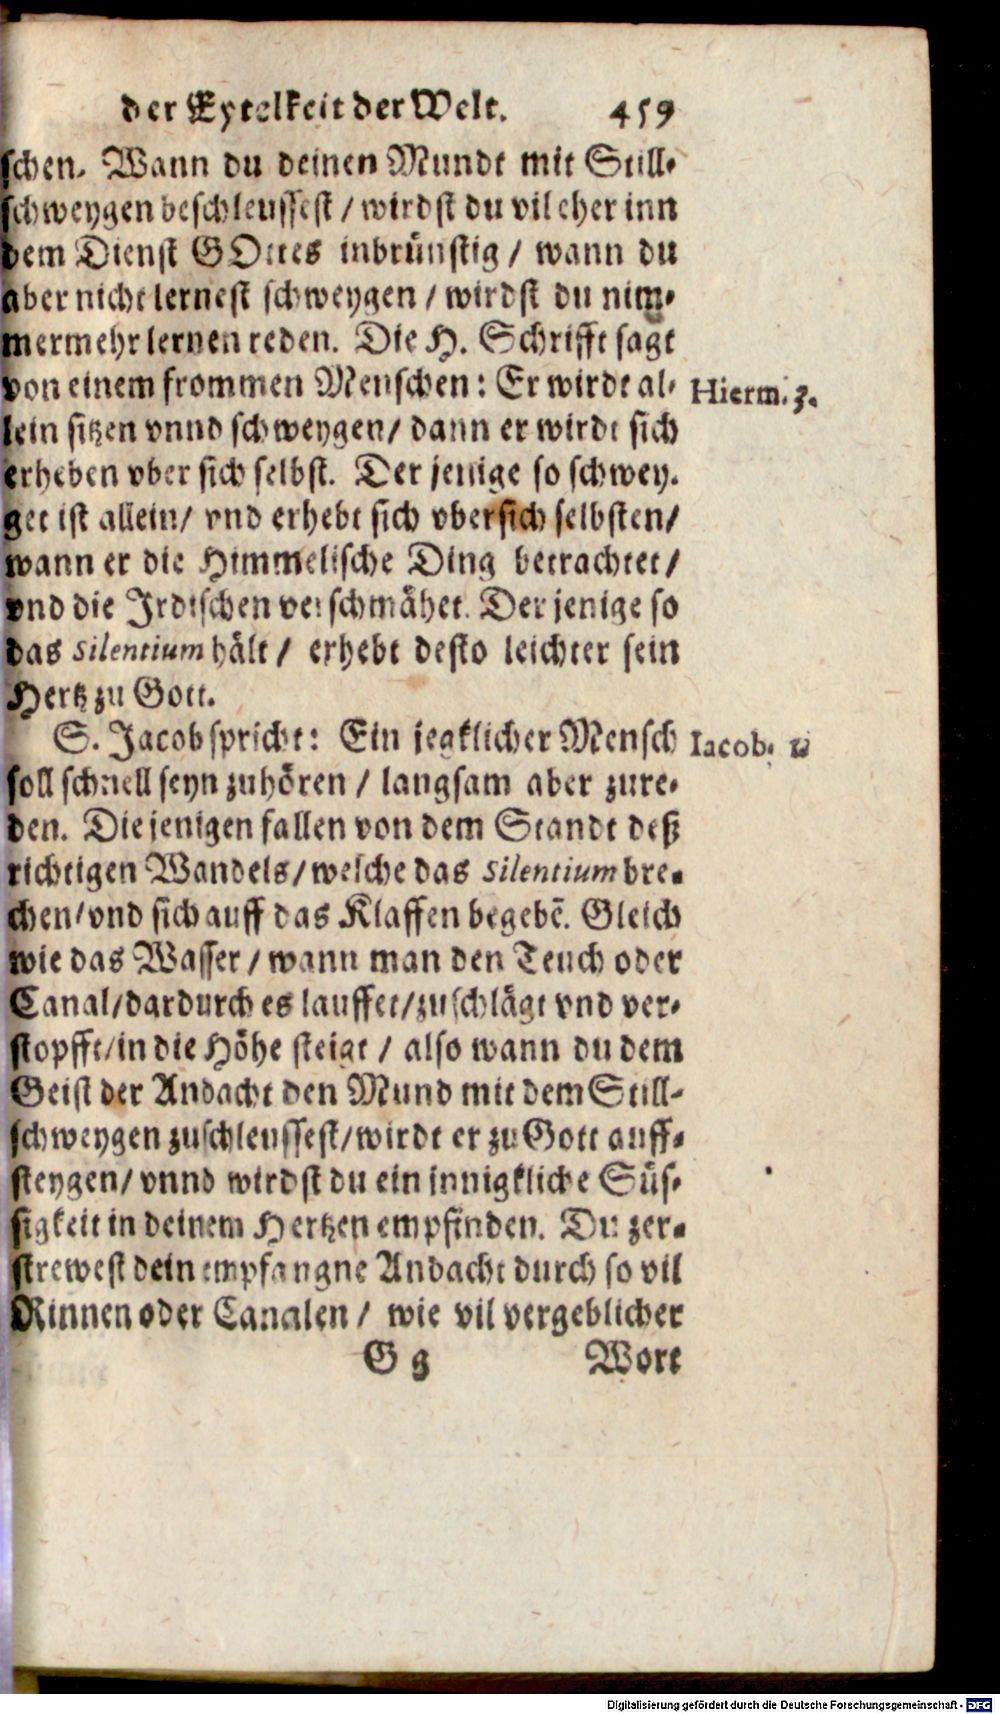 der Eytelkeit der Welt. 459
schen. Wann du deinen Mundt mit Still-
schweygen beschleussest / wirdst du vil eher inn
dem Dienst GOttes inbrünstig / wann du
aber nicht lernest schweygen / wirdst du nim-
mermehr lernen reden. Die H. Schrifft sagt
von einem frommen Menschen: Er wirdt al- Hierm. 3.
lein sitzen vnnd schweygen/ dann er wirdt sich
erheben vber sich selbst. Der jenige so schwey-
get ist allein/ vnd erhebt sich vber sich selbsten/
wann er die Himmelische Ding betrachtet/
vnd die Irdischen verschmähet. Der jenige so
das Silentium hält / erhebt desto leichter sein
Hertz zu Gott.
S. Jacob spricht: Ein jegklicher Mensch Iacob. 1.
soll schnell seyn zuhören / langsam aber zure-
den. Die jenigen fallen von dem Standt deß
richtigen Wandels/ welche das Silentium bre-
chen/ vnd sich auff das Klaffen begebē. Gleich
wie das Wasser / wann man den Teuch oder
Canal/ dardurch es lauffet/ zuschlägt vnd ver-
stopfft/ in die Höhe steigt / also wann du dem
Geist der Andacht den Mund mit dem Still-
schweygen zuschleussest/ wirdt er zu Gott auff-
steygen/ vnnd wirdst du ein innigkliche Süs-
sigkeit in deinem Hertzen empfinden. Du zer-
strewest dein empfangne Andacht durch so vil
Rinnen oder Canalen / wie vil vergeblicher
G g Wort
Digitalisierung gefördert durch die Deutsche Forschungsgemeinschaft - DFG